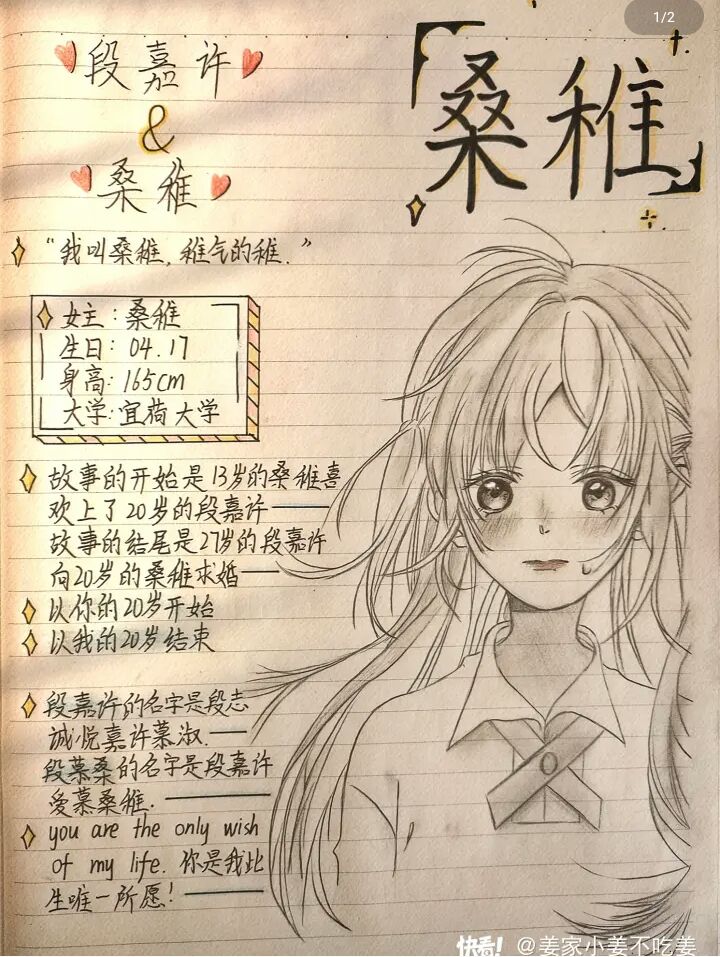 1/2
段嘉许
&
桑稚
桑稚
“我叫桑稚，稚气的稚.”
女主：桑稚
生日：04.17
身高：165cm
大学：宜荷大学
故事的开始是13岁的桑稚喜
欢上了20岁的段嘉许——
故事的结尾是27岁的段嘉许
向20岁的桑稚求婚—
以你的20岁开始
以我的20岁结束
段嘉许的名字是段志
诚悦嘉许慕淑.—
段慕桑的名字是段嘉许
爱慕桑稚.——
you are the only wish
of my life. 你是我此
生唯一所愿！——
快看! @姜家小姜不吃姜